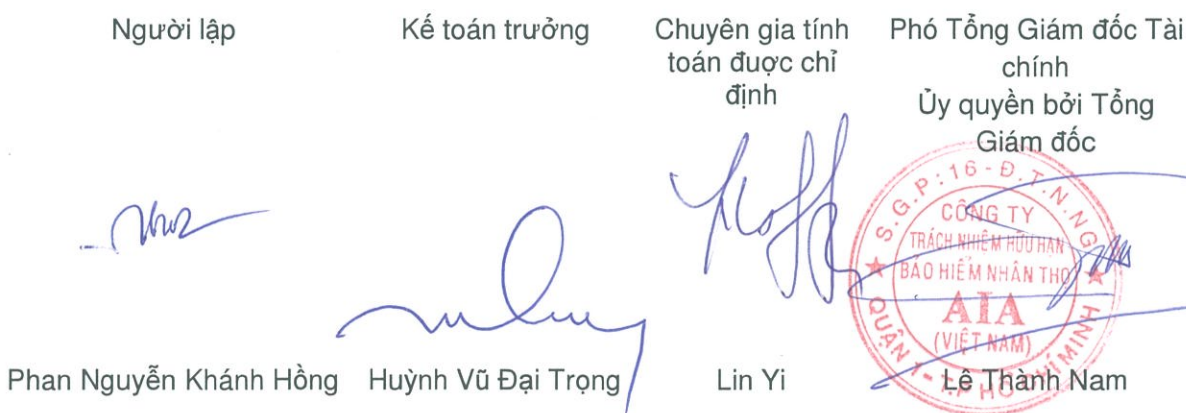 Người lập
Kế toán trưởng
Chuyên gia tính
toán đuợc chỉ
định
Phó Tổng Giám đốc Tài
chính
Ủy quyền bởi Tổng
Giám đốc
S.G.P:16-Đ.T.N.NG
CÔNG TY
TRÁCH NHIỆM HỮU HẠN
BẢO HIỂM NHÂN THỌ
AIA
(VIỆT NAM)
QUẬN 1 - T.P HỒ CHÍ MINH
Phan Nguyễn Khánh Hồng
Huỳnh Vũ Đại Trọng
Lin Yi
Lê Thành Nam